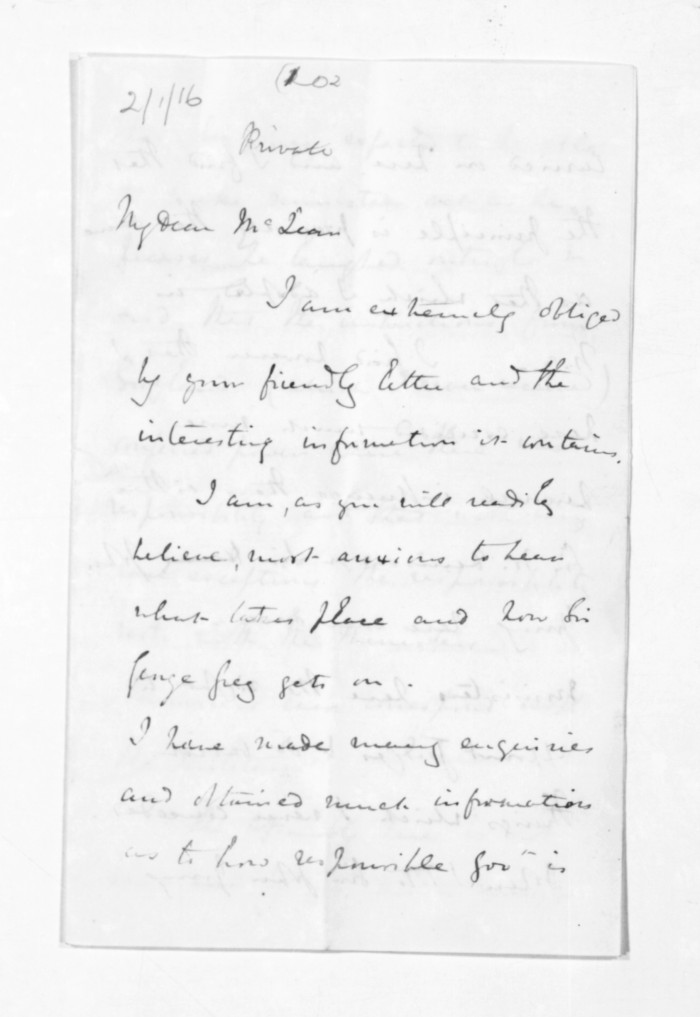 (202
2/1/16
Private
My dear McLean
I am extremely obliged
by your friendly letter and the
interesting information it contains.
I am, as you will readily
believe, most anxious to hear
what takes place and how Sir
George Grey gets on.
I have made many enquiries
and obtained much information
as to how responsible Govt is